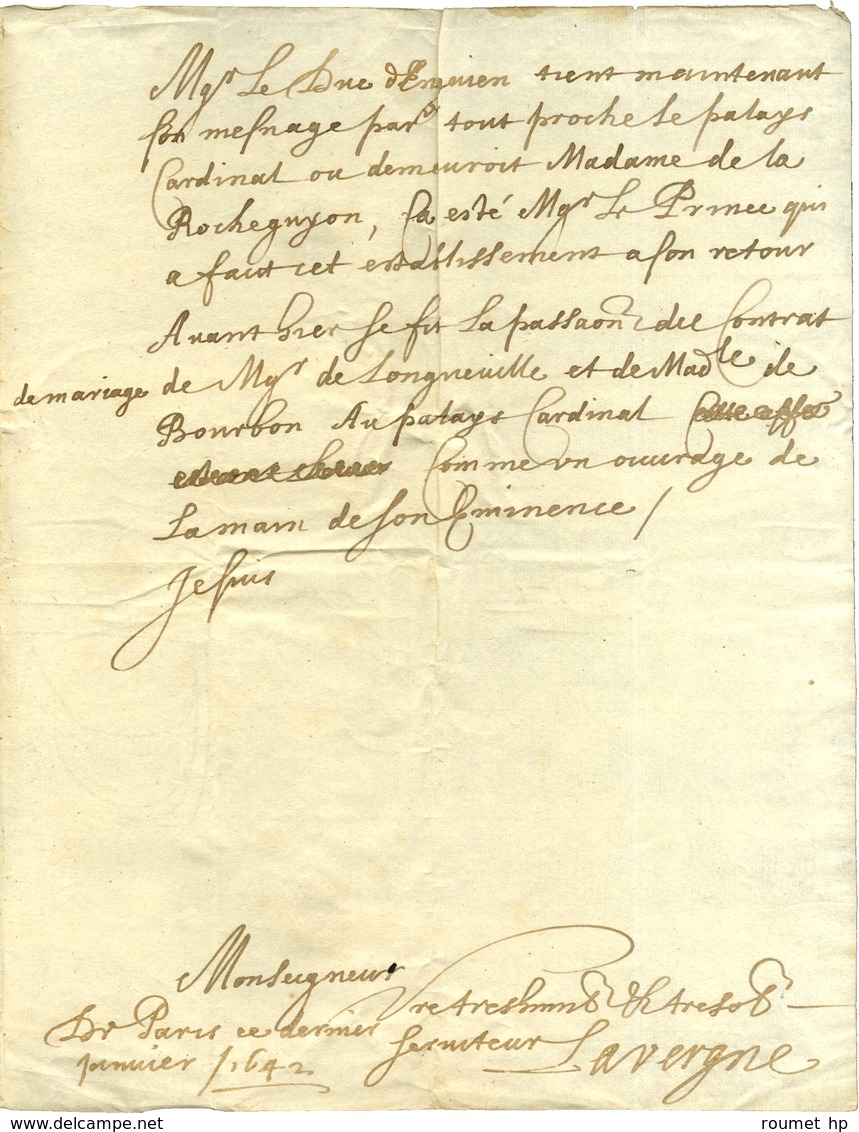 Mgr Le Duc d'Enguien tient maintenant
son mesnage par tout proche le palays
Cardinal ou demeuroit Madame de la
Rocheguyon, Ca esté Mgr Le Prince qui
a faict cet establissement a son retour
Avant hier se fit La passaon du Contrat
de mariage de Mgr de Longueville et de Madle de
Bourbon Au palays Cardinal
Comme un ouvrage de
La main de son Eminence /
Je suis
Monseigneur
Vre treshumb & tresob
De Paris ce dernier serviteur
Janvier 1642 Lavergne
www.delcampe.net roumet hp